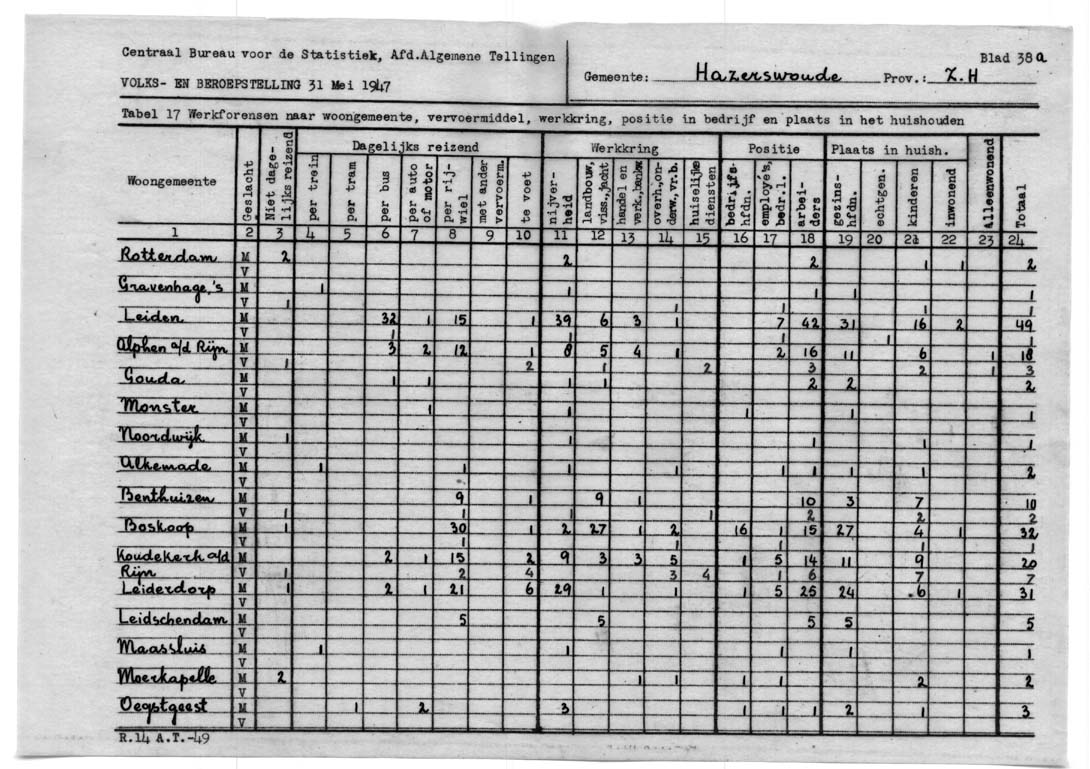 Centraal Bureau voor de Statistiek, Afd.Algemene Tellingen
Blad 38a
VOLKS- EN BEROEPSTELLING 31 Mei 1947
Gemeente: Hazerswoude Prov.: Z.H
Tabel 17 Werkforensen naar woongemeente, vervoermiddel, werkkring, positie in bedrijf en plaats in het huishouden
Woongemeente Geslacht Niet dage-lijks reizend Dagelijks reizend Werkkring Positie Plaats in huish. Alleenwonend Totaal
per trein per tram per bus per auto of motor per rij-wiel met ander vervoerm. te voet nijver-heid landbouw, viss.,jacht handel en verk.,bankw. overh.,on-derw.,vr.b. huiselijke diensten bedrijfs-hfdn. employé's, bedr.l. arbei-ders gezins-hfdn. echtgen. kinderen inwonend
1 2 3 4 5 6 7 8 9 10 11 12 13 14 15 16 17 18 19 20 21 22 23 24
Rotterdam M 2 2 2 1 1 2
V
Gravenhage,'s M 1 1 1 1 1
V 1 1 1 1 1
Leiden M 32 1 15 1 39 6 3 1 7 42 31 16 2 49
V 1 1 1 1 1
Alphen a/d Rijn M 3 2 12 1 8 5 4 1 2 16 11 6 1 18
V 1 2 1 2 3 2 1 3
Gouda M 1 1 1 1 2 2 2
V
Monster M 1 1 1 1 1
V
Noordwijk M 1 1 1 1 1
V
Alkemade M 1 1 1 1 1 1 1 1 2
V
Benthuizen M 9 1 9 1 10 3 7 10
V 1 1 1 1 2 2 2
Boskoop M 1 30 1 2 27 1 2 16 1 15 27 4 1 32
V 1 1 1 1 1
Koudekerk a/d M 2 1 15 2 9 3 3 5 1 5 14 11 9 20
Rijn V 1 2 4 3 4 1 6 7 7
Leiderdorp M 1 2 1 21 6 29 1 1 1 5 25 24 6 1 31
V
Leidschendam M 5 5 5 5 5
V
Maassluis M 1 1 1 1 1
V
Moerkapelle M 2 1 1 1 1 2 2
V
Oegstgeest M 1 2 3 1 1 1 2 1 3
V
R.14 A.T.-49